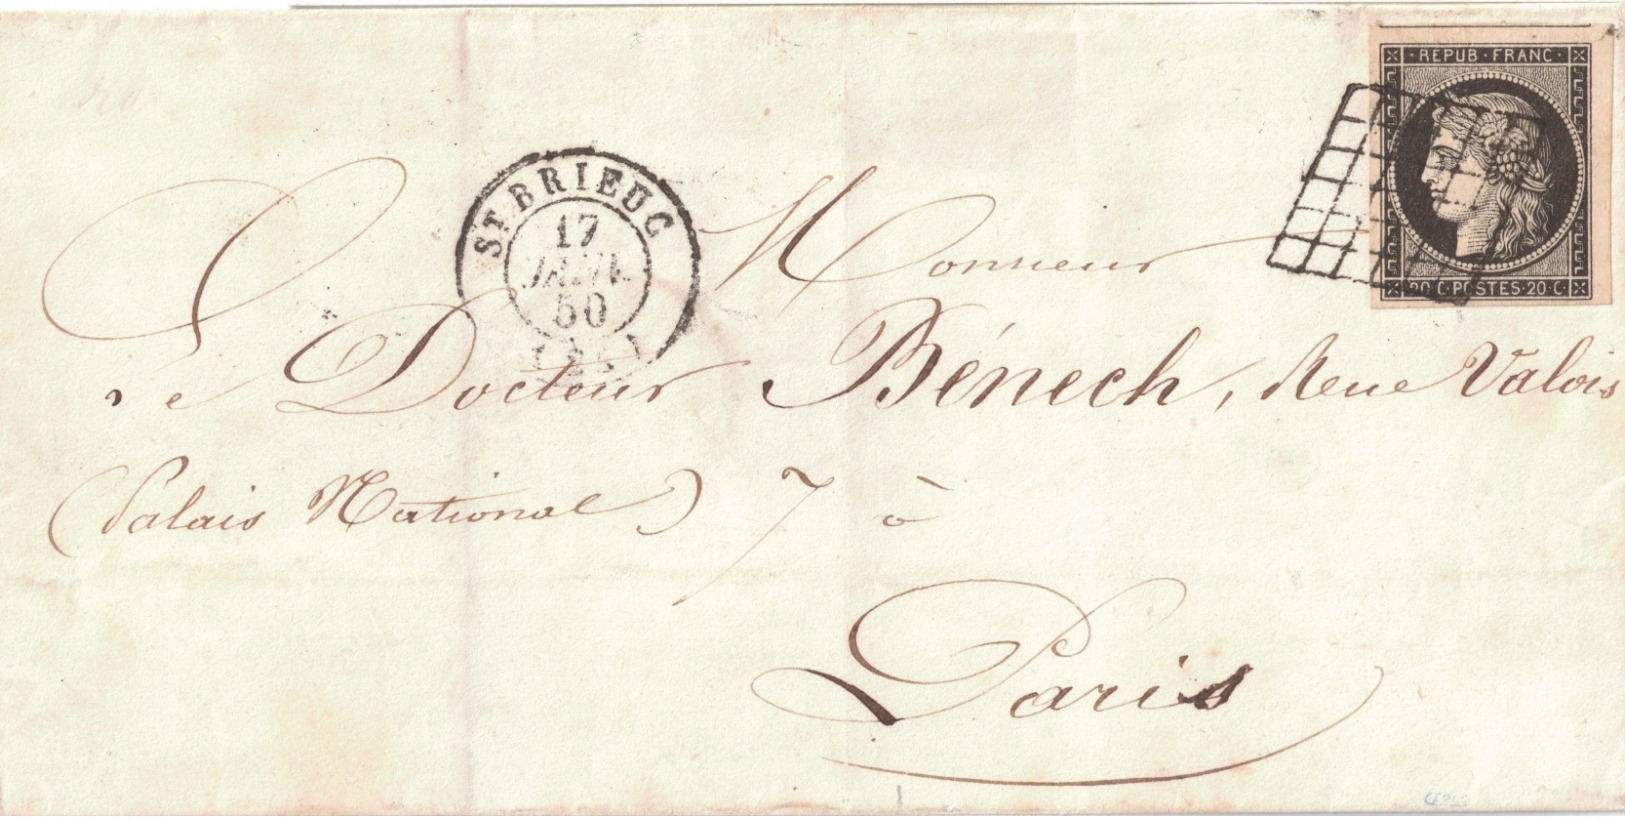 REPUB · FRANC ·
20 · C · POSTES · 20 · C ·
ST BRIEUC
17
JANV.
50
Monsieur
Le Docteur Bénech, Rue Valois
(Palais National) 7 à
Paris